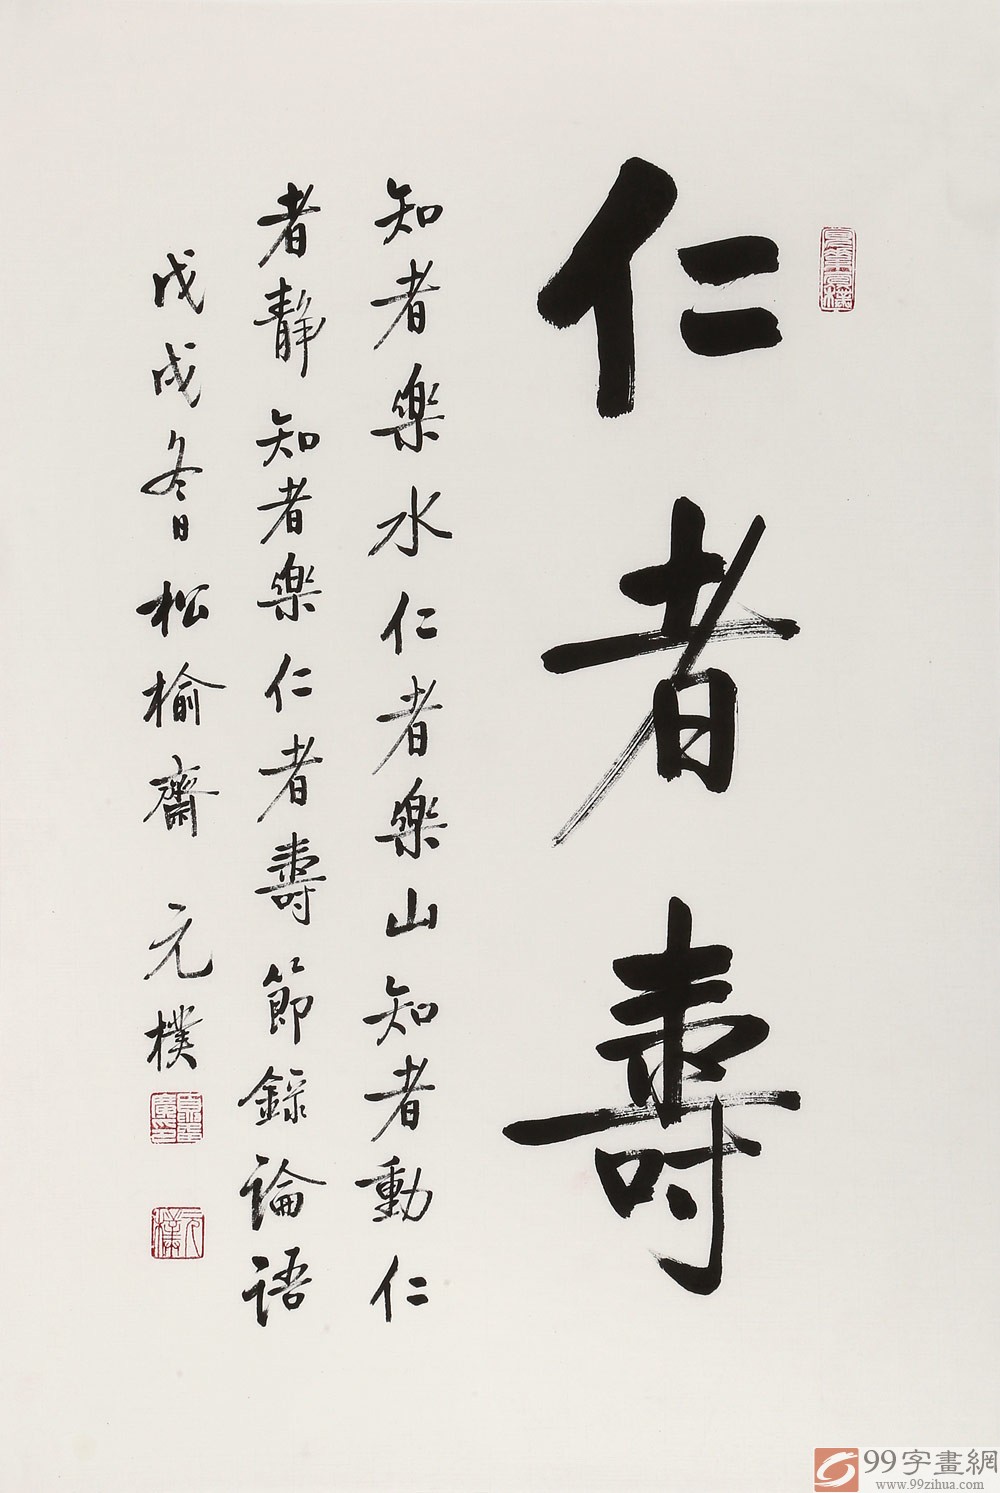 仁者壽
知者樂水仁者樂山知者動仁
者靜知者樂仁者壽節錄論語
戊戌冬日松榆齋 元樸
元樸
99字畫網
www.99zihua.com